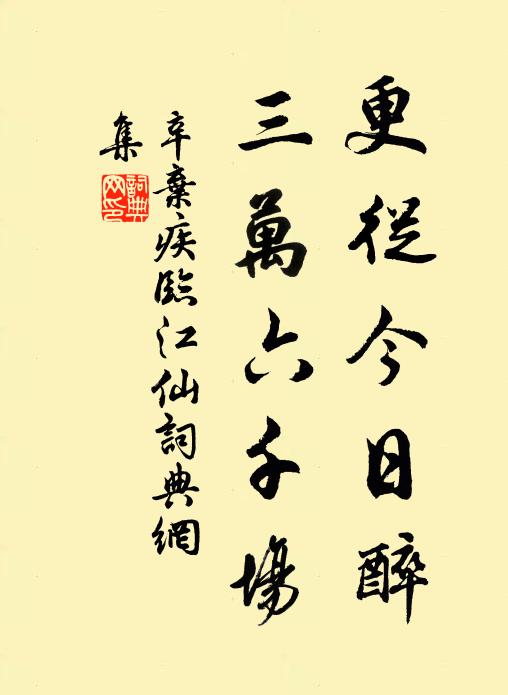 更從今日醉
三萬六千場
辛棄疾臨江仙詞典網
集
詞典
网印